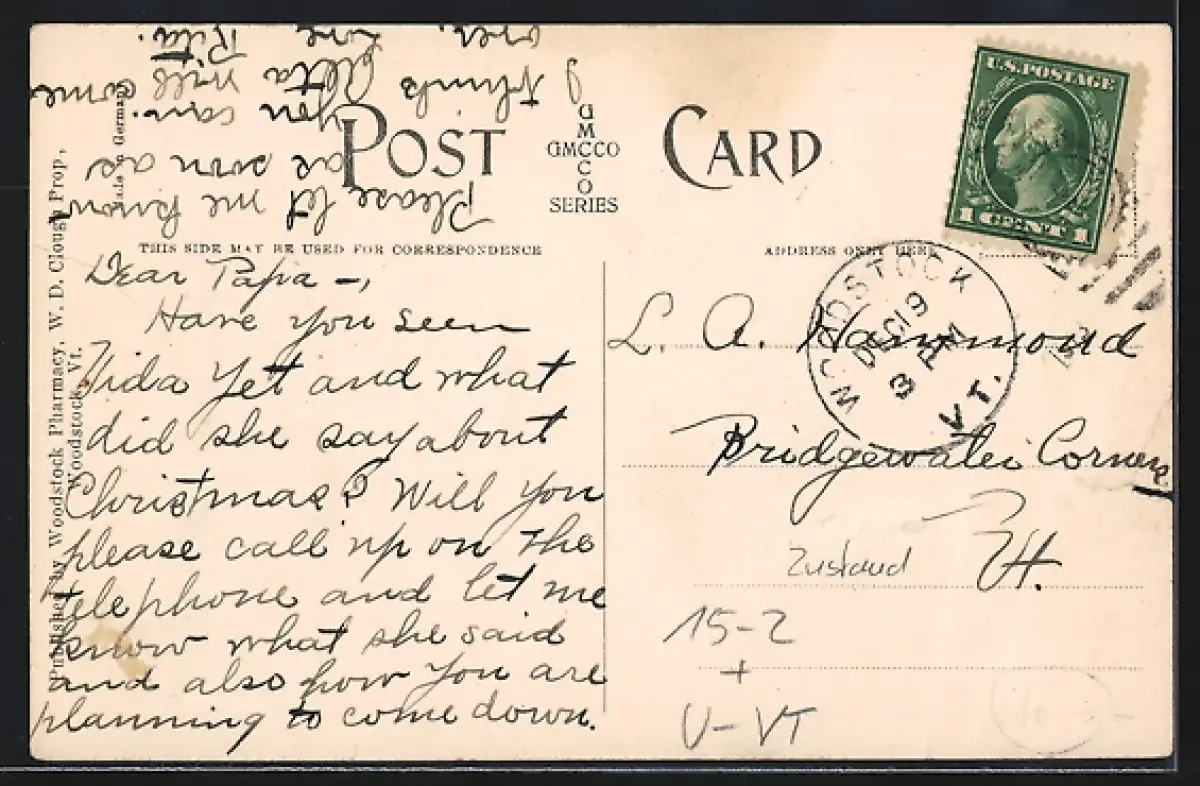 POST CARD
GMCCO
GMCCO
SERIES
THIS SIDE MAY BE USED FOR CORRESPONDENCE
ADDRESS ONLY HERE
U.S. POSTAGE
1 CENT 1
WOODSTOCK
DEC 19
3 PM
VT.
Published by Woodstock Pharmacy, W. D. Clough Prop.,
Woodstock, Vt.
Germany
Dear Papa -,
Have you seen
Vida yet and what
did she say about
Christmas? Will you
please call up on the
telephone and let me
know what she said
and also how you are
planning to come down.
Please let me know
as soon as
you can.
I think Alta will come
over. Love Rita.
L. A. Hammond
Bridgewater Corners
Vt.
Zustand
15-2
+
U-VT